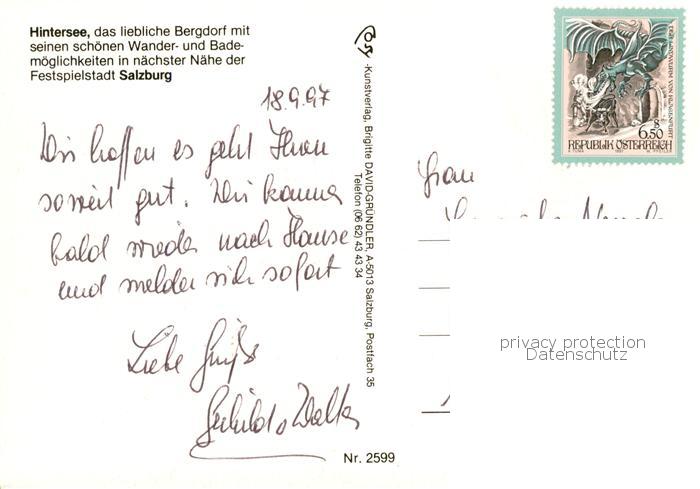 Hintersee, das liebliche Bergdorf mit
seinen schönen Wander- und Bade-
möglichkeiten in nächster Nähe der
Festspielstadt Salzburg
18.9.97
Wir hoffen es geht Ihnen
soweit gut. Wir kommen
bald wieder nach Hause
und melden sich sofort
Liebe Grüße
Walter
Nr. 2599
Cosy-Kunstverlag, Brigitte DAVID-GRÜNDLER, A-5013 Salzburg, Postfach 35
Telefon (06 62) 43 43 34
DER LINDWURM VON KLAGENFURT
S
6.50
REPUBLIK ÖSTERREICH
Frau
privacy protection
Datenschutz